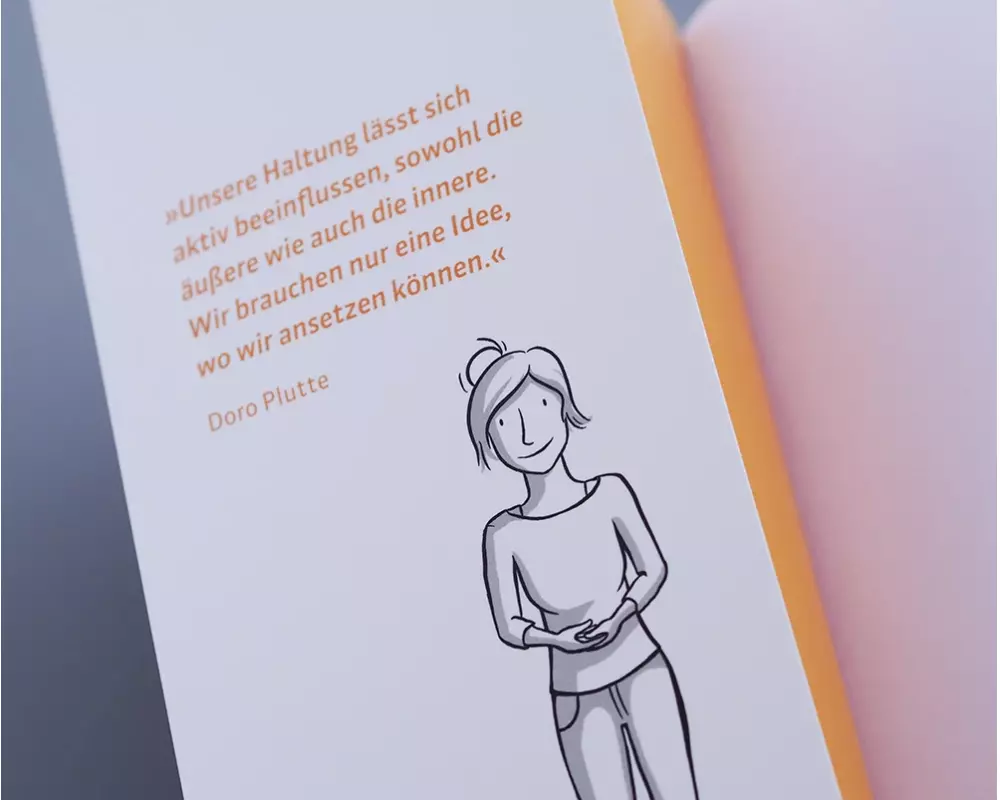 »Unsere Haltung lässt sich
aktiv beeinflussen, sowohl die
äußere wie auch die innere.
Wir brauchen nur eine Idee,
wo wir ansetzen können.«
Doro Plutte